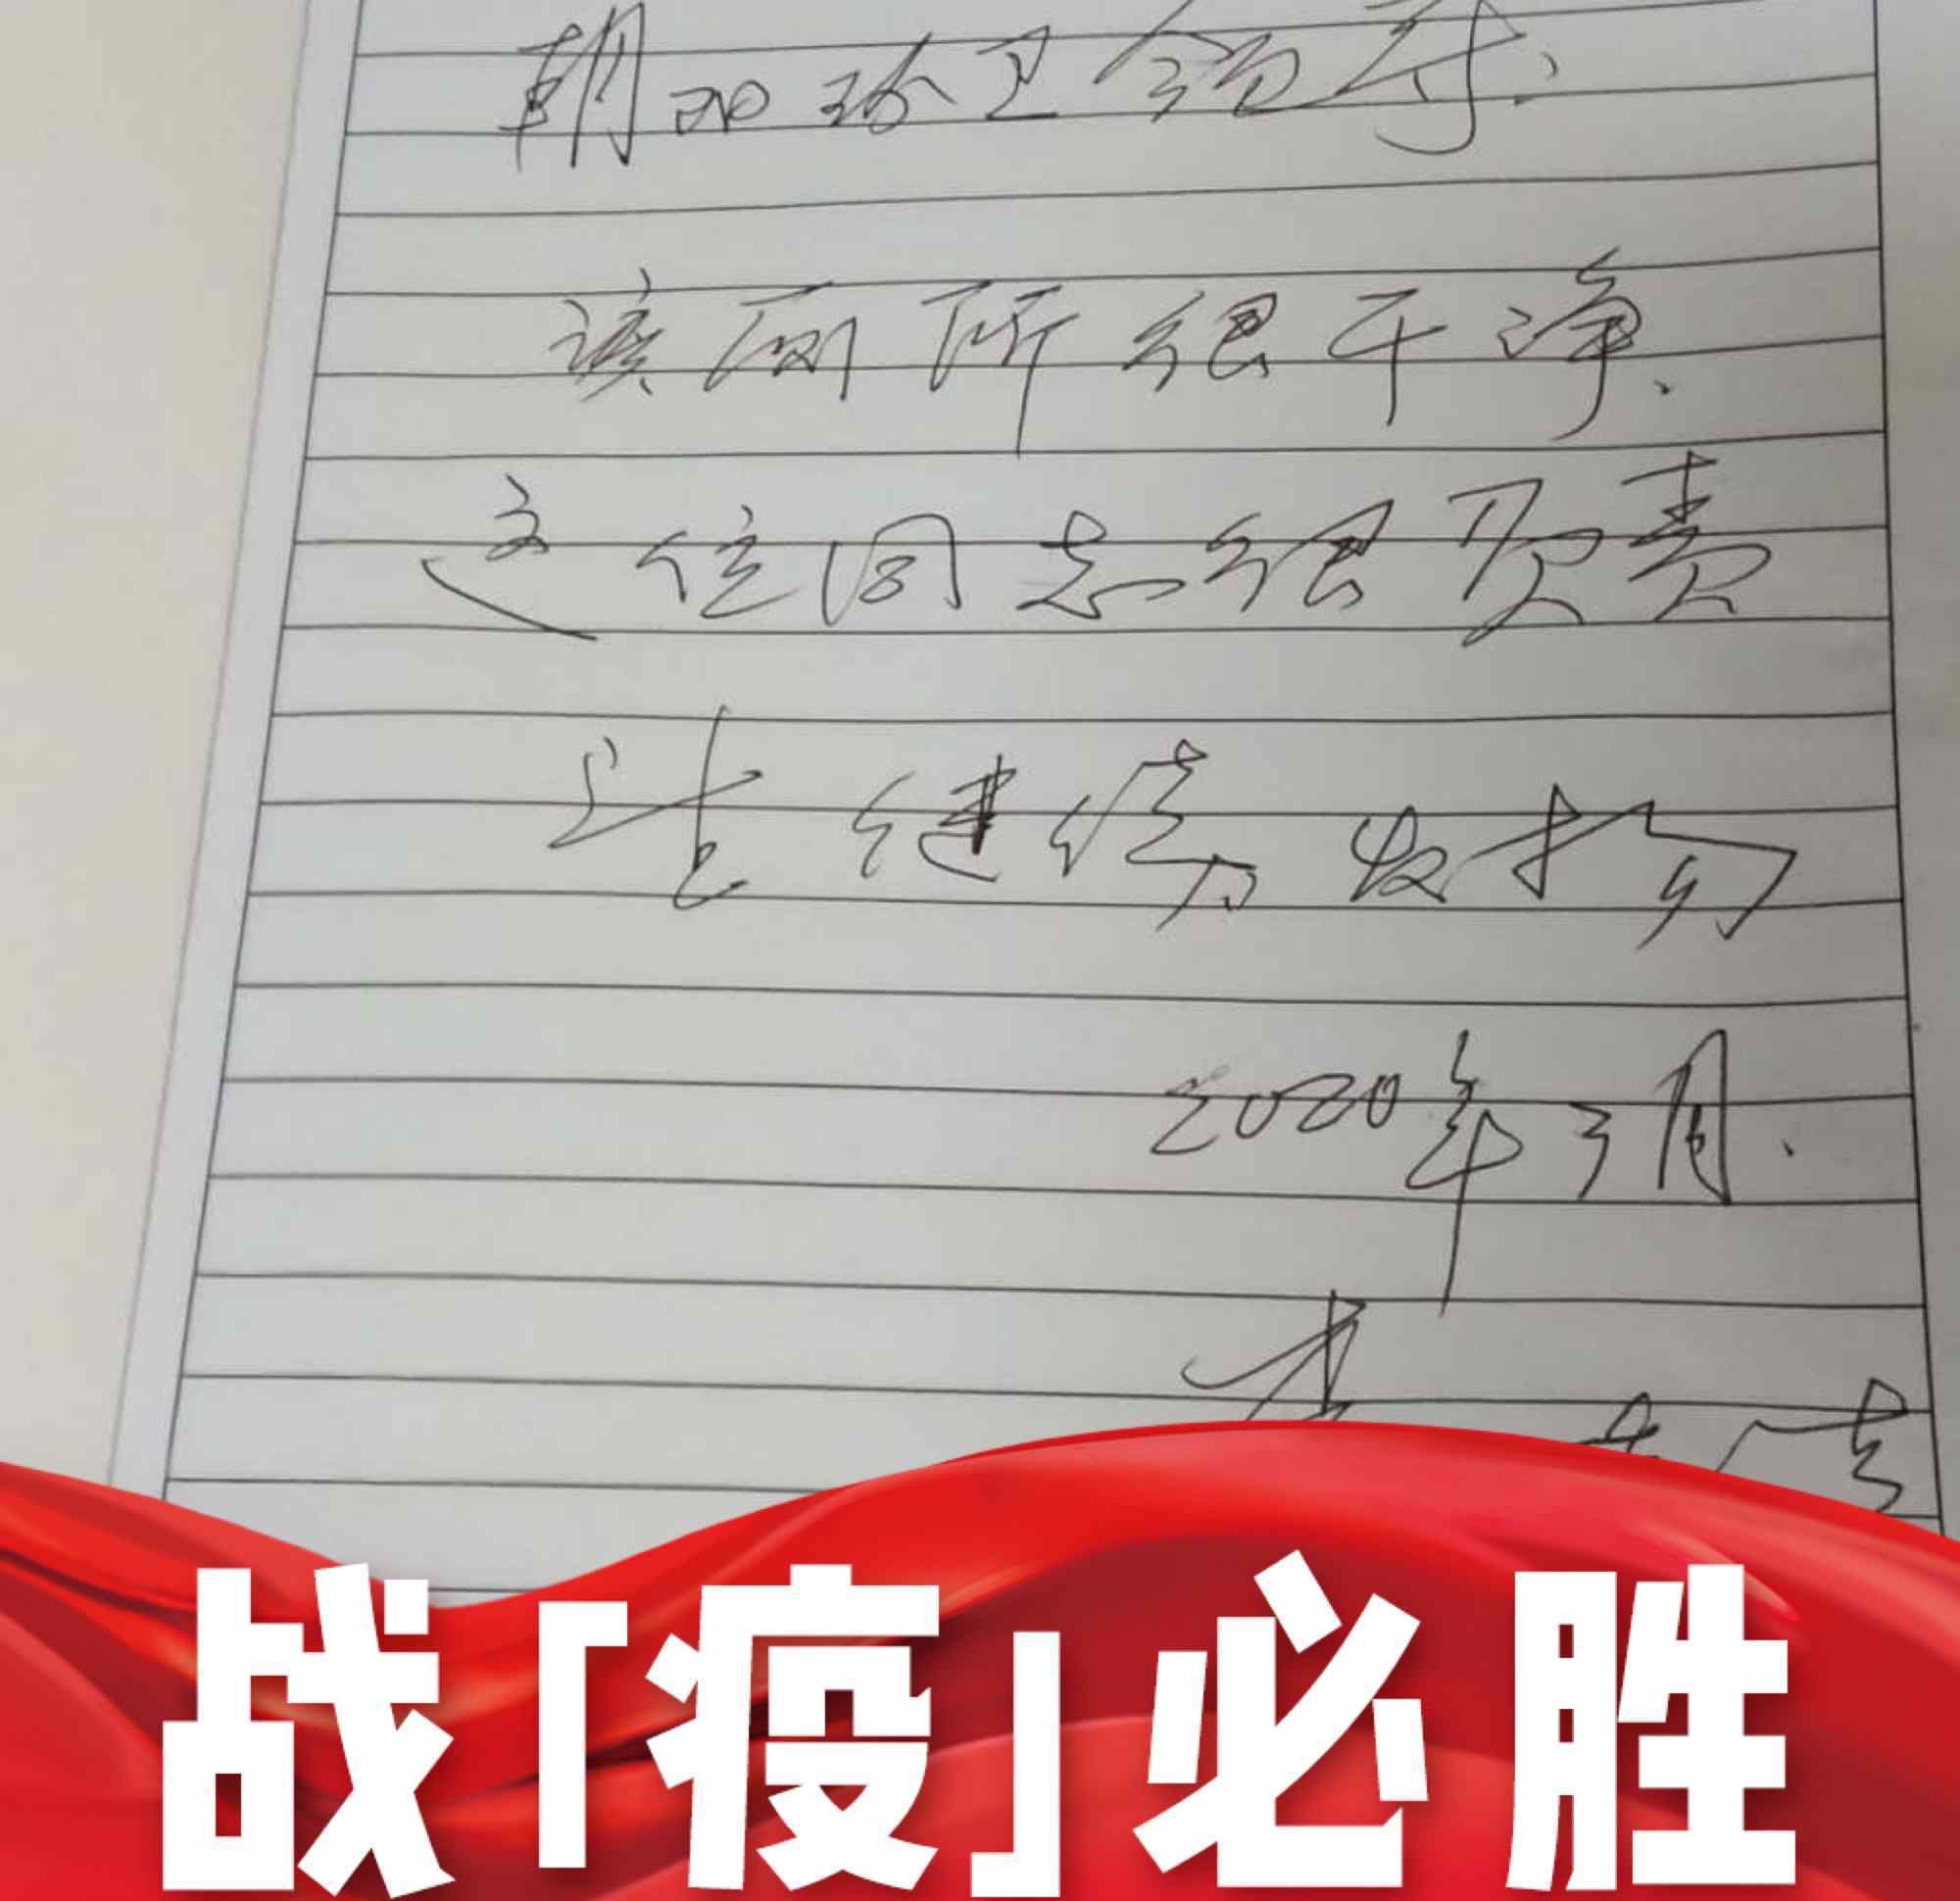 朝阳环卫领导：
该厕所很干净、
这位同志很负责
继续发扬
2020年3月、
战「疫」必胜